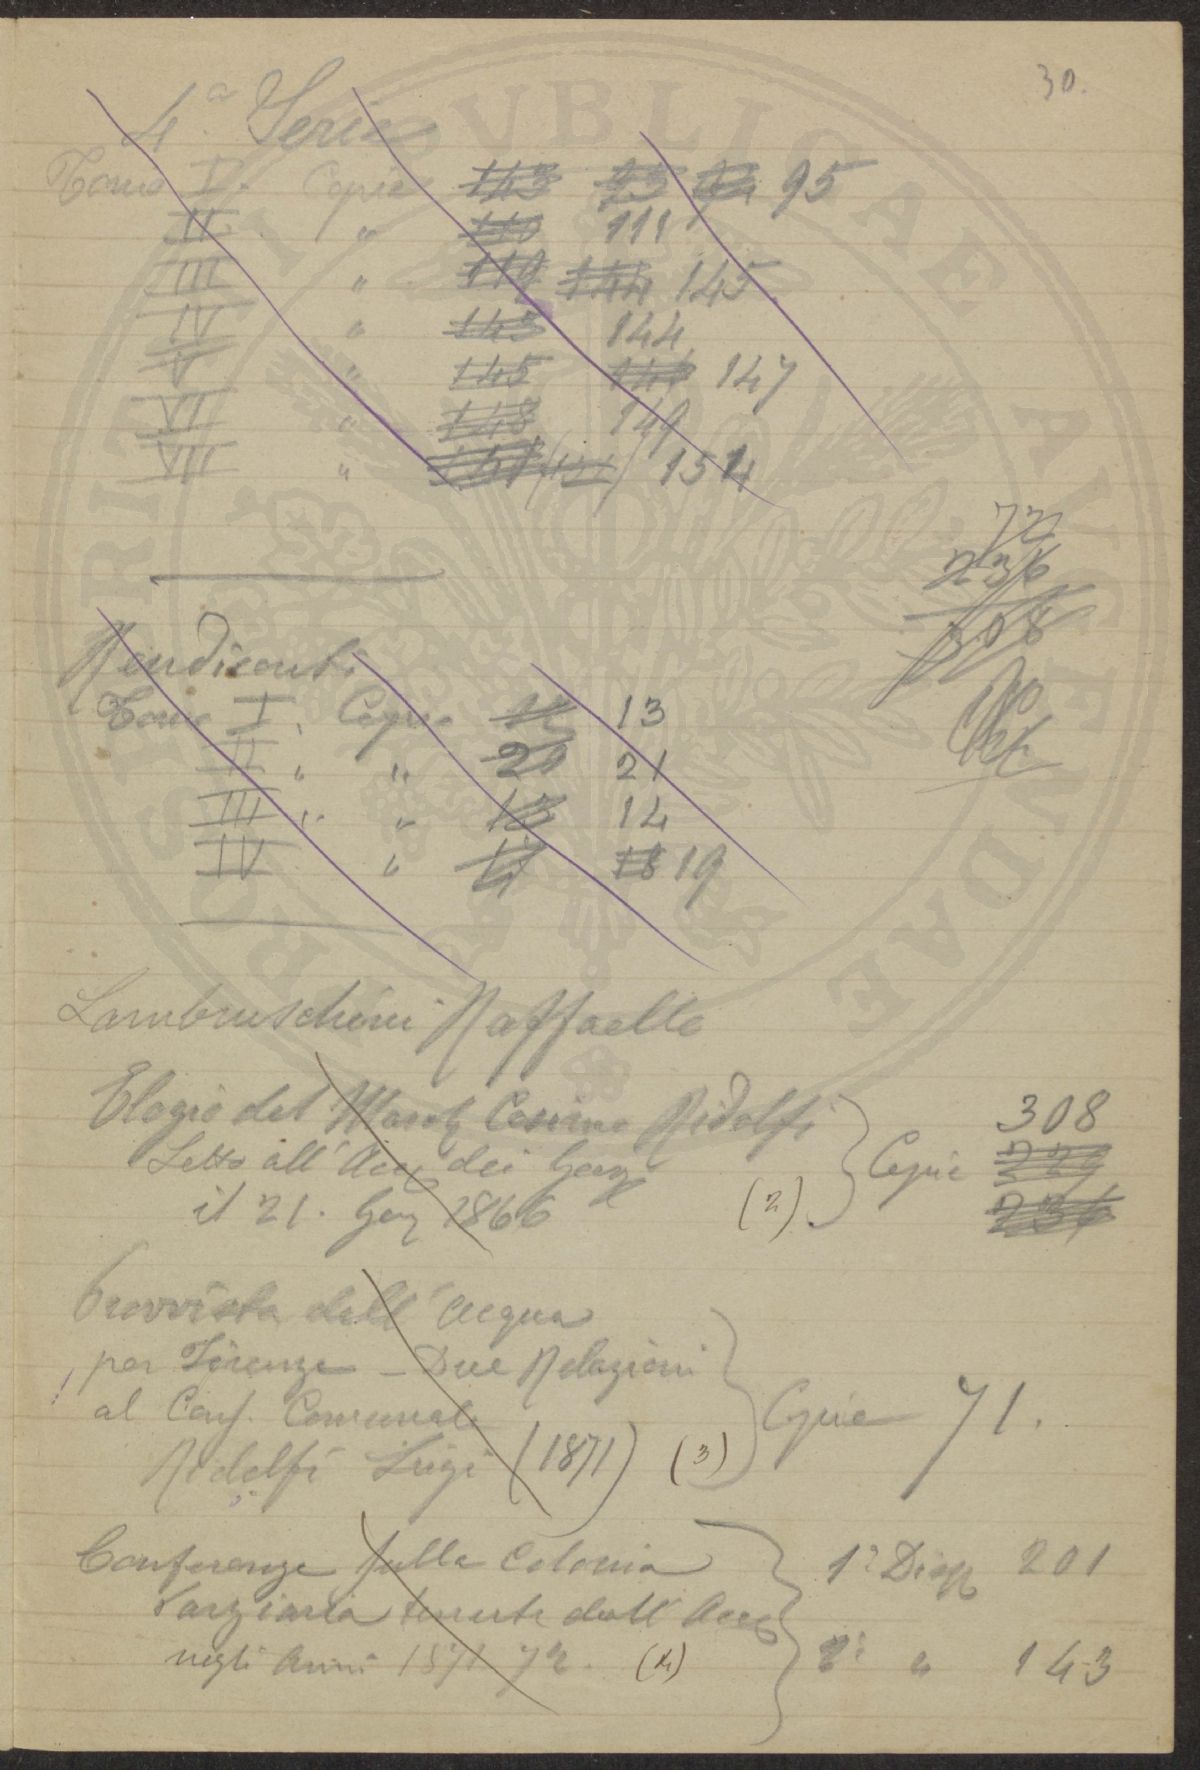 30.
4.a Serie
Tomo I. Copie 143 93 94 95
II. " 110 111
III " 119 144 145
IV " 143 144
V " 145 146 147
VI " 148 149
VII " 151 (151) 154
72
236
308
Rendiconti
Tomo I. Copie 12 13
II " " 20 21
III " " 13 14
IV " 17 18 19
Lambruschini Raffaello
Elogio del March Cosimo Ridolfi
Letto all' Acc dei Georg
il 21. Gen 1866 (2) Copie 308
229
236
Provvista dell' acqua
per Firenze – Due Relazioni
al Cons. Comunale
Ridolfi Luigi (1871) (3) Copie 71.
Conferenze sulla Colonia
Parziaria tenute dall' Acc
negli Anni 1871 72. (4)
1a Disp 201
2a " 143
PROSPERITATI PVBLICAE AVGENDAE